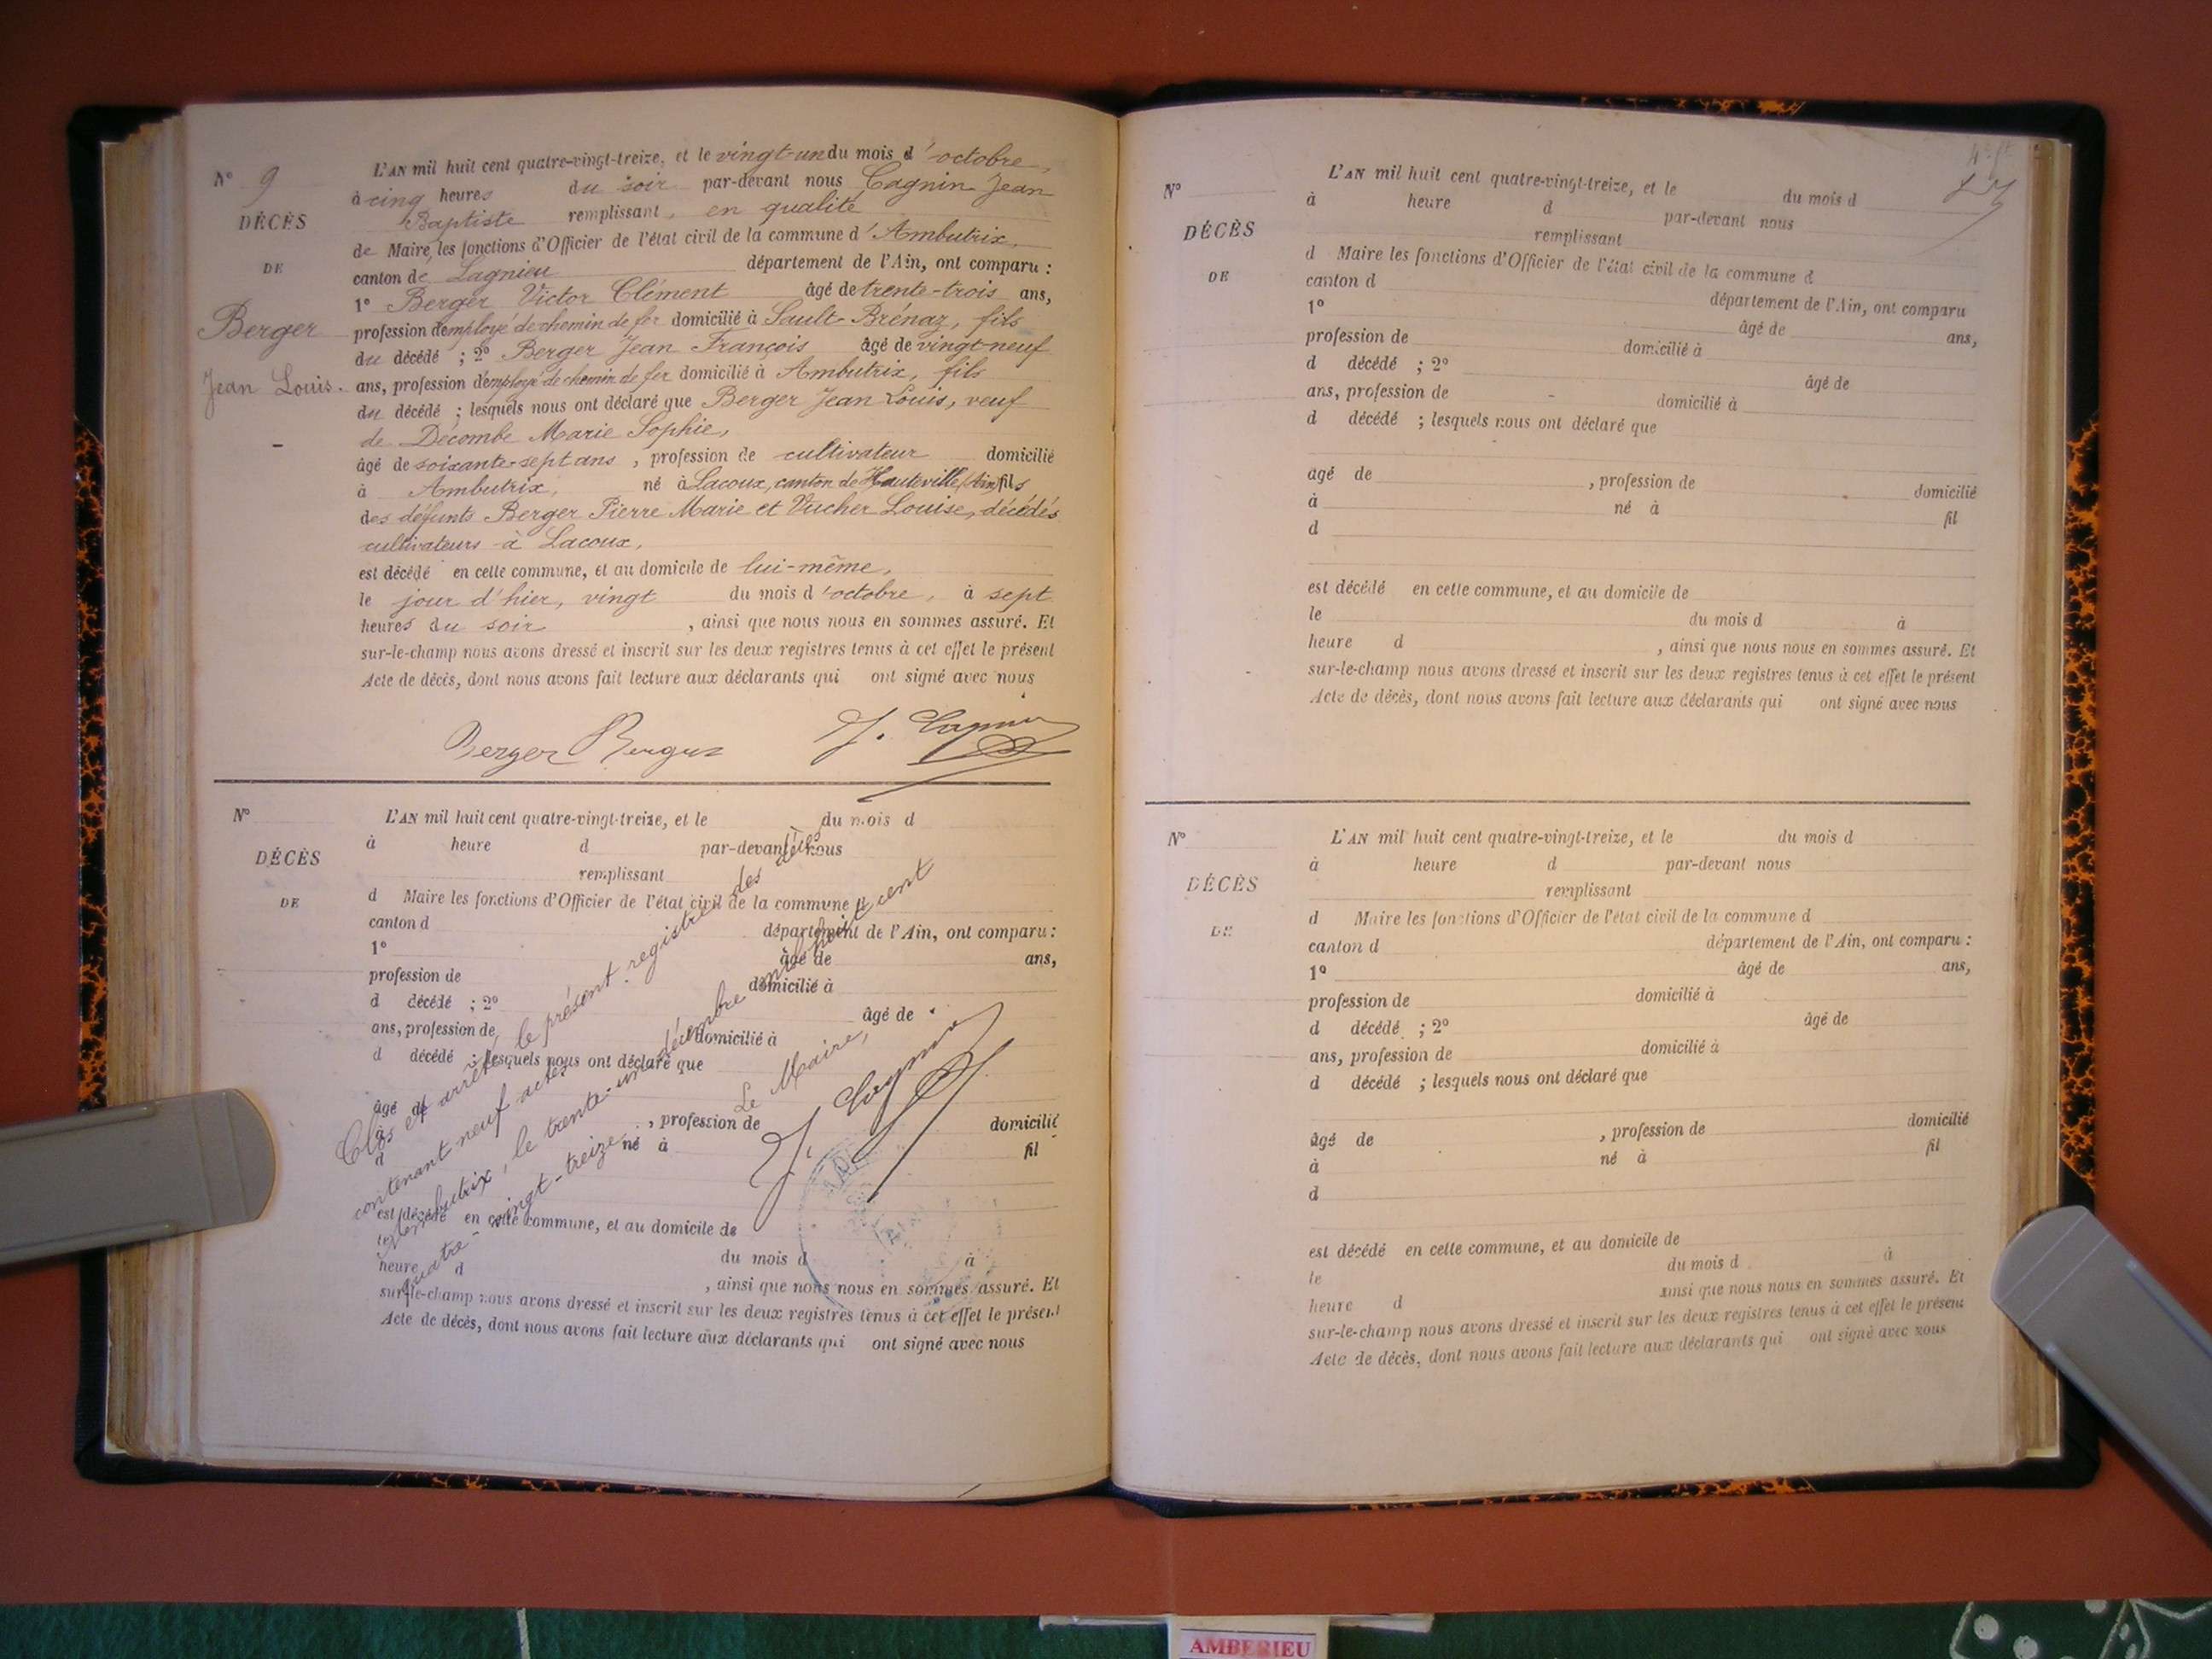 N° 9
DÉCÈS
DE
Berger
Jean Louis.
L'AN mil huit cent quatre-vingt-treize, et le vingt-un du mois d'octobre,
à cinq heures du soir par-devant nous Cagnin Jean
Baptiste remplissant, en qualité
de Maire, les fonctions d'Officier de l'état civil de la commune d'Ambutrix,
canton de Lagnieu département de l'Ain, ont comparu :
1° Berger Victor Clément âgé de trente-trois ans,
profession d'employé de chemin de fer domicilié à Sault-Brénaz, fils
du décédé ; 2° Berger Jean François âgé de vingt-neuf
ans, profession d'employé de chemin de fer domicilié à Ambutrix, fils
du décédé ; lesquels nous ont déclaré que Berger Jean Louis, veuf
de Décombe Marie Sophie,
âgé de soixante-sept ans, profession de cultivateur domicilié
à Ambutrix, né à Lacoux, canton de Hauteville (Ain) fils
des défunts Berger Pierre Marie et Vucher Louise, décédés
cultivateurs à Lacoux,
est décédé en cette commune, et au domicile de lui-même,
le jour d'hier, vingt du mois d'octobre, à sept
heures du soir, ainsi que nous nous en sommes assuré. Et
sur-le-champ nous avons dressé et inscrit sur les deux registres tenus à cet effet le présent
Acte de décès, dont nous avons fait lecture aux déclarants qui ont signé avec nous
Berger Berger J. Cagnin
N°
DÉCÈS
DE
L'AN mil huit cent quatre-vingt-treize, et le du mois d
à heure d par-devant nous
remplissant
d Maire les fonctions d'Officier de l'état civil de la commune d
canton d département de l'Ain, ont comparu :
1° âgé de ans,
profession de domicilié à
d décédé ; 2° âgé de
ans, profession de domicilié à
d décédé ; lesquels nous ont déclaré que
âgé de , profession de domicilié
à né à fil
d
est décédé en cette commune, et au domicile de
le du mois d à
heure d , ainsi que nous nous en sommes assuré. Et
sur-le-champ nous avons dressé et inscrit sur les deux registres tenus à cet effet le présent
Acte de décès, dont nous avons fait lecture aux déclarants qui ont signé avec nous
Clos et arrêté le présent registre des décès
contenant neuf actes
Ambutrix, le trente-un décembre mil huit cent
quatre-vingt-treize.
Le Maire,
J. Cagnin
N°
DÉCÈS
DE
L'AN mil huit cent quatre-vingt-treize, et le du mois d
à heure d par-devant nous
remplissant
d Maire les fonctions d'Officier de l'état civil de la commune d
canton d département de l'Ain, ont comparu
1° âgé de ans,
profession de domicilié à
d décédé ; 2° âgé de
ans, profession de domicilié à
d décédé ; lesquels nous ont déclaré que
agé de , profession de domicilié
à né à fil
d
est décédé en cette commune, et au domicile de
le du mois d à
heure d , ainsi que nous nous en sommes assuré. Et
sur-le-champ nous avons dressé et inscrit sur les deux registres tenus à cet effet le présent
Acte de décès, dont nous avons fait lecture aux déclarants qui ont signé avec nous
N°
DÉCÈS
DE
L'AN mil huit cent quatre-vingt-treize, et le du mois d
à heure d par-devant nous
remplissant
d Maire les fonctions d'Officier de l'état civil de la commune d
canton d département de l'Ain, ont comparu :
1° âgé de ans,
profession de domicilié à
d décédé ; 2° âgé de
ans, profession de domicilié à
d décédé ; lesquels nous ont déclaré que
âgé de , profession de domicilié
à né à fil
d
est décédé en cette commune, et au domicile de
le du mois d à
heure d ainsi que nous nous en sommes assuré. Et
sur-le-champ nous avons dressé et inscrit sur les deux registres tenus à cet effet le présent
Acte de décès, dont nous avons fait lecture aux déclarants qui ont signé avec nous
AMBERIEU